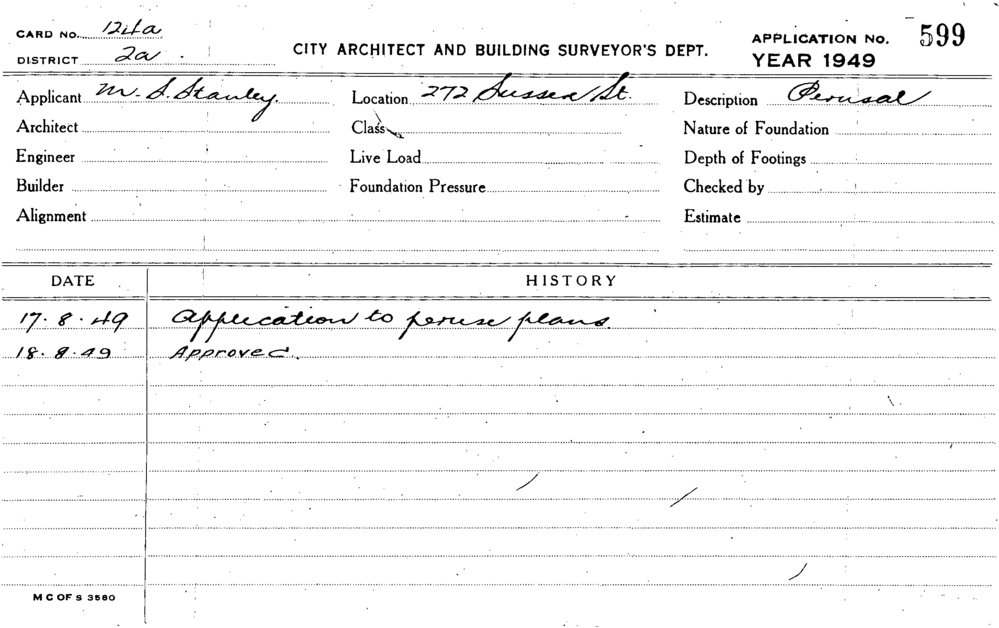 CARD No. 124a
CITY ARCHITECT AND BUILDING SURVEYOR'S DEPT.
APPLICATION No. 599
DISTRICT 2a
YEAR 1949
Applicant M. S. Stanley. Location 272 Sussex St. Description Perusal
Architect Class Nature of Foundation
Engineer Live Load Depth of Footings
Builder Foundation Pressure Checked by
Alignment Estimate
DATE HISTORY
17.8.49 Application to peruse plans.
18.8.49 Approved.
M C OF S 3580